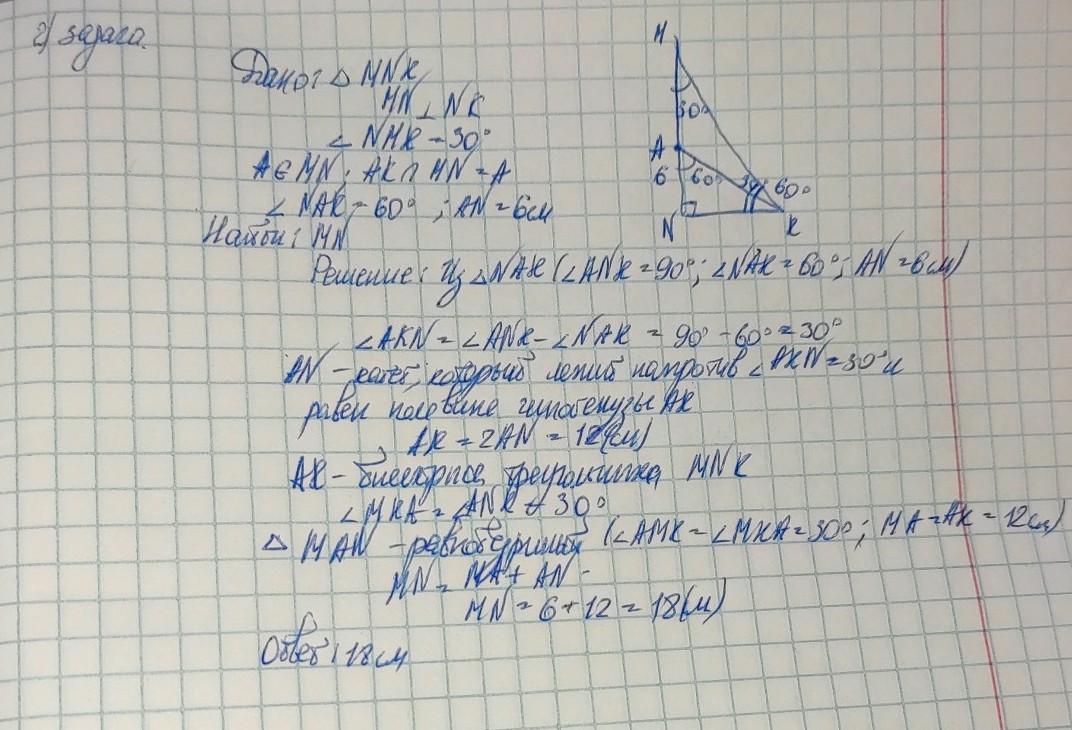 2) задача.
Дано: △ MNK
MN ⊥ NK
∠ NMK = 30°
A ∈ MN; AK ∩ MN = A
∠ NAK = 60° ; AN = 6см
Найти: MN
Решение: Из △NAK (∠ANK = 90°; ∠NAK = 60°; AN = 6см)
∠AKN = ∠ANK - ∠NAK = 90° - 60° = 30°
AN - катет, который лежит напротив ∠AKN = 30° и
равен половине гипотенузы AK
AK = 2AN = 12(см)
AK - биссектриса треугольника MNK
∠MKA = ∠ANK = 30°
△ MAN - равнобедренный (∠AMK = ∠MKA = 30°; MA = AK = 12см)
MN = MA + AN
MN = 6 + 12 = 18(м)
Ответ: 18см
M
30°
A
6 60° 30° 60°
N K